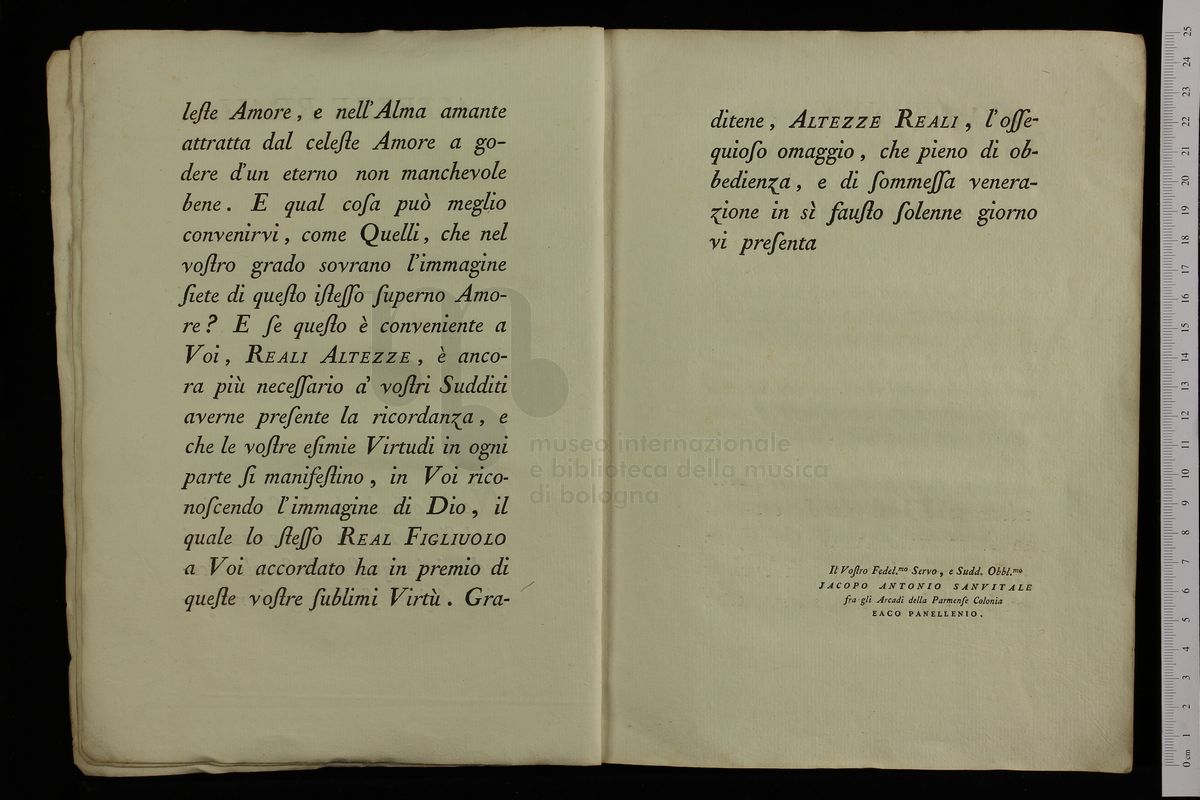 leſte Amore, e nell'Alma amante
attratta dal celeſte Amore a go-
dere d'un eterno non manchevole
bene. E qual coſa può meglio
convenirvi, come Quelli, che nel
voſtro grado sovrano l'immagine
ſiete di queſto iſteſſo ſuperno Amo-
re? E ſe queſto è conveniente a
Voi, REALI ALTEZZE, è anco-
ra più neceſſario a' voſtri Sudditi
averne preſente la ricordanza, e
che le voſtre eſimie Virtudi in ogni
parte ſi manifeſtino, in Voi rico-
noſcendo l'immagine di Dio, il
quale lo ſteſſo REAL FIGLIUOLO
a Voi accordato ha in premio di
queſte voſtre ſublimi Virtù. Gra-
ditene, ALTEZZE REALI, l'oſſe-
quioſo omaggio, che pieno di ob-
bedienza, e di ſommeſſa venera-
zione in sì fauſto ſolenne giorno
vi preſenta
Il Voſtro Fedel.mo Servo, e Sudd. Obbl.mo
JACOPO ANTONIO SANVITALE
fra gli Arcadi della Parmenſe Colonia
EACO PANELLENIO.
museo internazionale
e biblioteca della musica
di bologna
0 cm 1 2 3 4 5 6 7 8 9 10 11 12 13 14 15 16 17 18 19 20 21 22 23 24 25